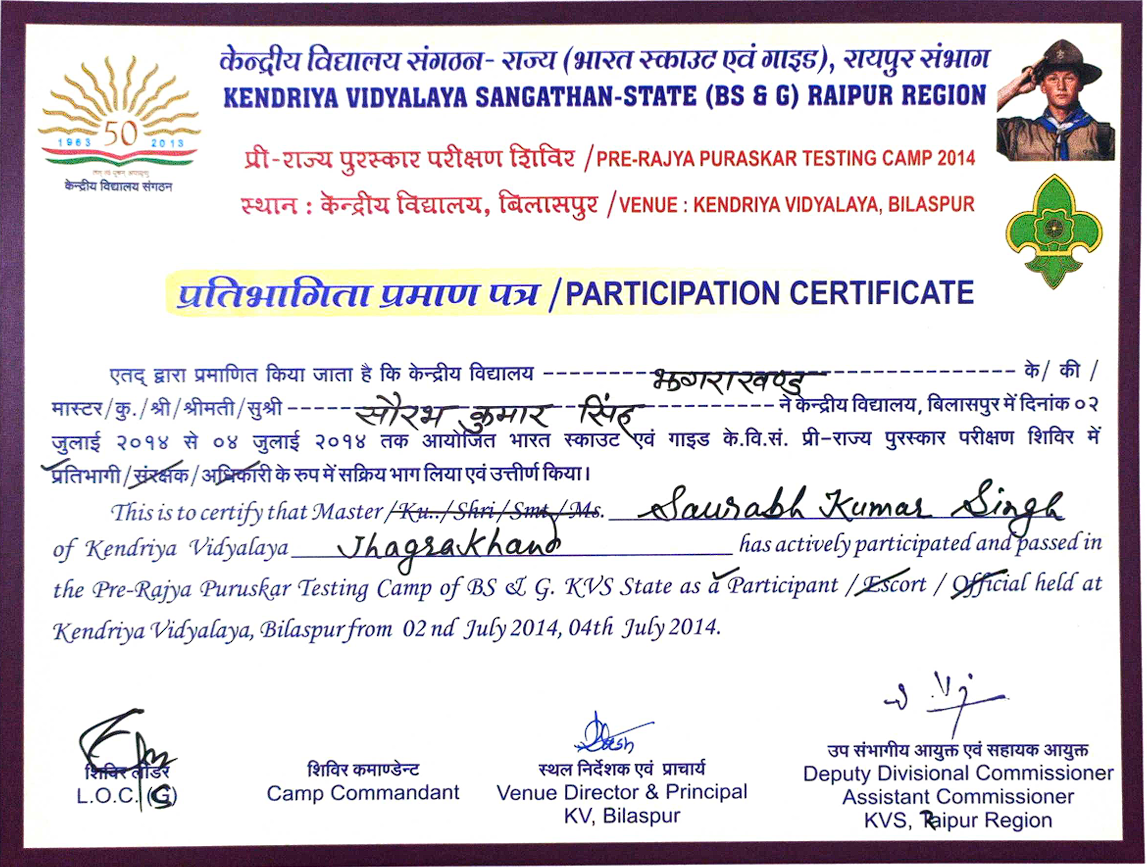 केन्द्रीय विद्यालय संगठन- राज्य (भारत स्काउट एवं गाइड), रायपुर संभाग
KENDRIYA VIDYALAYA SANGATHAN-STATE (BS & G) RAIPUR REGION
1963 50 2013
केन्द्रीय विद्यालय संगठन
प्री-राज्य पुरस्कार परीक्षण शिविर / PRE-RAJYA PURASKAR TESTING CAMP 2014
स्थान : केन्द्रीय विद्यालय, बिलासपुर / VENUE : KENDRIYA VIDYALAYA, BILASPUR
प्रतिभागिता प्रमाण पत्र / PARTICIPATION CERTIFICATE
एतद् द्वारा प्रमाणित किया जाता है कि केन्द्रीय विद्यालय झगराखण्ड के/ की /
मास्टर/कु./श्री/श्रीमती/सुश्री सौरभ कुमार सिंह ने केन्द्रीय विद्यालय, बिलासपुर में दिनांक ०२
जुलाई २०१४ से ०४ जुलाई २०१४ तक आयोजित भारत स्काउट एवं गाइड के.वि.सं. प्री-राज्य पुरस्कार परीक्षण शिविर में
प्रतिभागी/संरक्षक/अधिकारी के रुप में सक्रिय भाग लिया एवं उत्तीर्ण किया।
This is to certify that Master /Ku../Shri/Smt./Ms. Saurabh Kumar Singh
of Kendriya Vidyalaya Jhagrakhand has actively participated and passed in
the Pre-Rajya Puruskar Testing Camp of BS & G. KVS State as a Participant / Escort / Official held at
Kendriya Vidyalaya, Bilaspur from 02 nd July 2014, 04th July 2014.
शिविर लीडर
L.O.C. (G)
शिविर कमाण्डेन्ट
Camp Commandant
स्थल निर्देशक एवं प्राचार्य
Venue Director & Principal
KV, Bilaspur
उप संभागीय आयुक्त एवं सहायक आयुक्त
Deputy Divisional Commissioner
Assistant Commissioner
KVS, Raipur Region